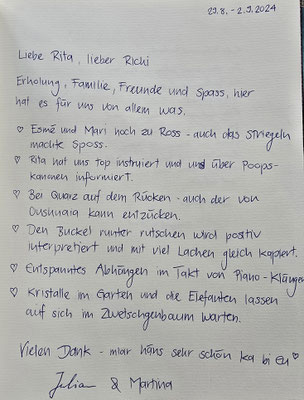 29.8. - 2.9.2024
Liebe Rita, lieber Richi
Erholung, Familie, Freunde und Spass, hier
hat es für uns von allem was.
♡ Esmé und Mari hoch zu Ross - auch das Striegeln
machte Spass.
♡ Rita hat uns top instruiert und und über Poops-
kanonen informiert.
♡ Bei Quarz auf dem Rücken - auch der von
Ushuaia kann entzücken.
♡ Den Buckel runter rutschen wird positiv
interpretiert und mit viel Lachen gleich kapiert.
♡ Entspanntes Abhängen im Takt von Piano-Klängen
♡ Kristalle im Garten und die Elefanten lassen
auf sich im Zwetschgenbaum warten.
Vielen Dank - miar häns sehr schön ka bi Eu ♡
Julian & Martina